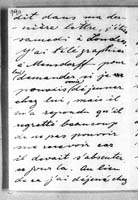 dit dans ma der-
nière lettre, j'étais
samedi à Londres
J'ai télégraphié
à Mensdorff pour
lui demander si je
pouvais déjeuner
chez lui, mais il
m'a répondu qu'il
regrette beaucoup
de ne pas pouvoir
me recevoir car
il devait s'absenter
ce jour là. Au lieu
de ce j'ai déjeuné chez